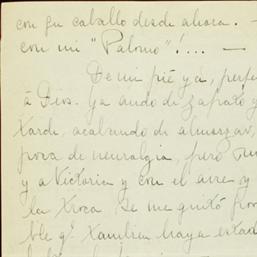 con su caballo desde ahora. —
con mi "Palomo"!.... —
De mi pié ya, perfe
á Dios. Ya ando de zapato y
tarde, acabando de almorzar,
poca de neuralgia, pero
y a Victoria y con el aire y
la Troca se me quitó
ble q. tambien haya estad